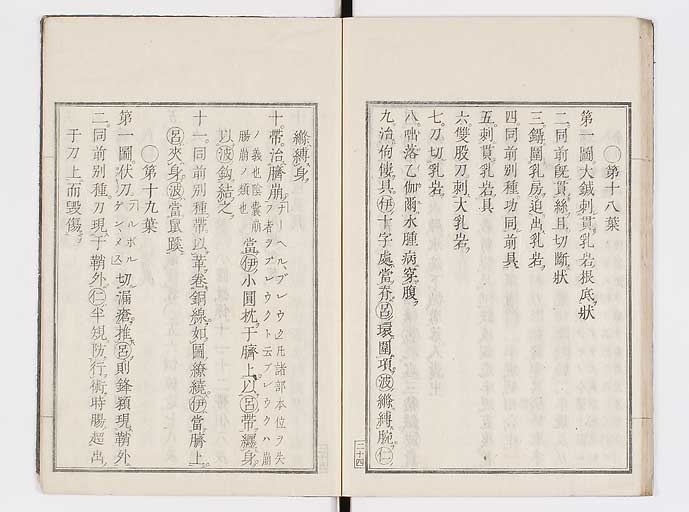 〇第十八葉
第一圖大鍼刺貫乳岩根底狀
二同前既貫絲且切斷狀
三鑄圍乳房追出乳岩
四同前別種功同前具
五刺貫乳岩具
六雙股刀刺大乳岩
七刀切乳岩
八咄落乙伽爾水腫病穿腹
九治佝僂具伊十字處當脊呂環圍項波縧縛腕仁
二十四
縧縛身
十帶治臍崩ナーヘル、ブレウク凡諸部本位ヲ失フ者ヲブレウクト云ブレウクハ崩ノ義也陰囊崩腸崩ノ類也當伊小圓枕于臍上以呂帶纒身
以波鈎結之
十一同前別種帶以革卷銅線如圖繚繞伊當臍上
呂夾身波當鼠蹊
〇第十九葉
第一圖伏刀 切漏瘡推呂則鋒穎現鞘外
二同前別種刀現于鞘外仁半規防行術時腸超出
于刀上而毀傷